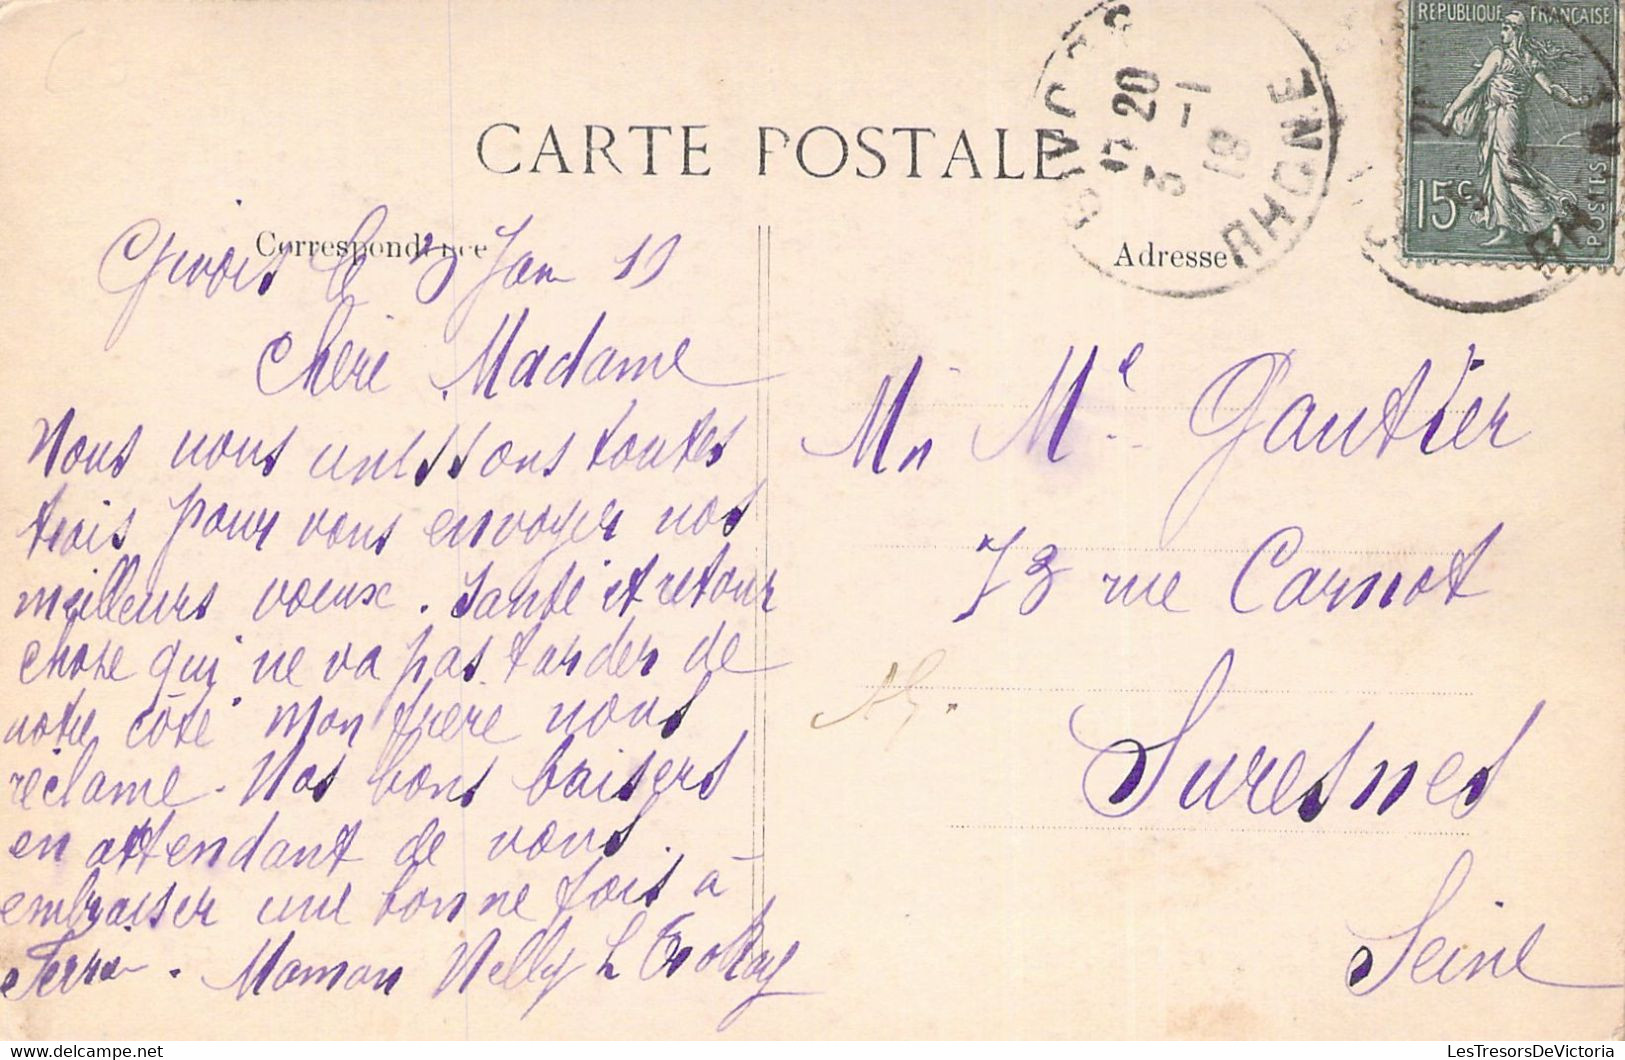 CARTE POSTALE
Correspondance
Adresse
REPUBLIQUE FRANÇAISE
15c
POSTES
GIVORS
20
3 -1
19
RHONE
Givors le 3 Jan 19
Chere Madame
Nous nous unissons toutes
trois pour vous envoyer nos
meilleurs voeux. Santé et retour
chose qui ne va pas tarder de
notre côté mon frere nous
réclame. Nos bons baisers
en attendant de vous
embrasser une bonne fois à
Maman Nelly L
Mr Me Gautier
73 rue Carnot
Suresnes
Seine
www.LesTresorsDeVictoria.com